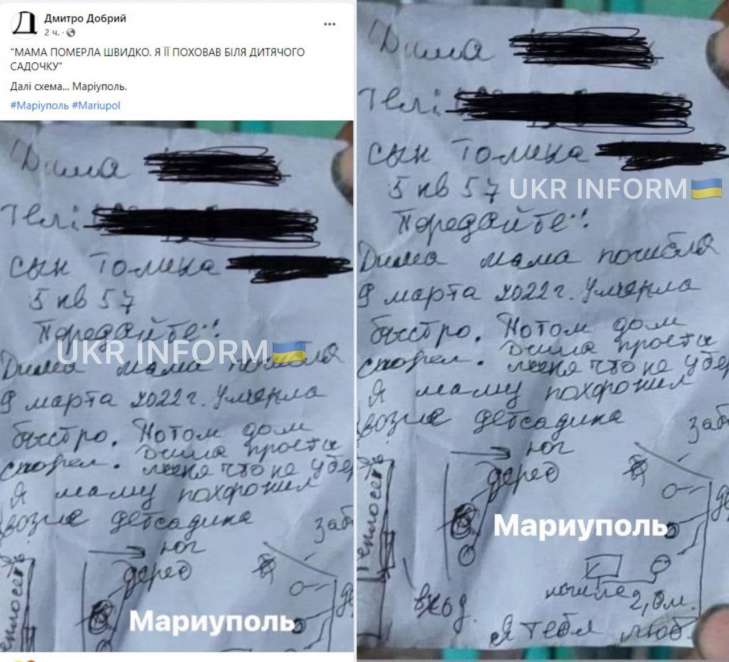 Дмитро Добрий
2 ч. ·
"МАМА ПОМЕРЛА ШВИДКО. Я ЇЇ ПОХОВАВ БІЛЯ ДИТЯЧОГО
САДОЧКУ"
Далі схема... Маріуполь.
#Маріуполь #Mariupol
Дима
Тел:
сын Толика
5 кв 57
Передайте!!
UKR INFORM
Дима мама погибла
9 марта 2022г. Умерла
быстро. Потом дом
сгорел. Дима прости
меня что не убер
Я маму похоронил
возле детсадика
юг
дерев
заб
Теплосеть
Мариуполь
Дима
Тел:
сын Толика
5 кв 57
UKR INFORM
Передайте!!
Дима мама погибла
9 марта 2022г. Умерла
быстро. Потом дом
сгорел. Дима прости
меня что не убер
Я маму похоронил
возле детсадика
заб
юг
дерев
Теплосеть
Мариуполь
вход
могила
2,0м.
Я тебя люб